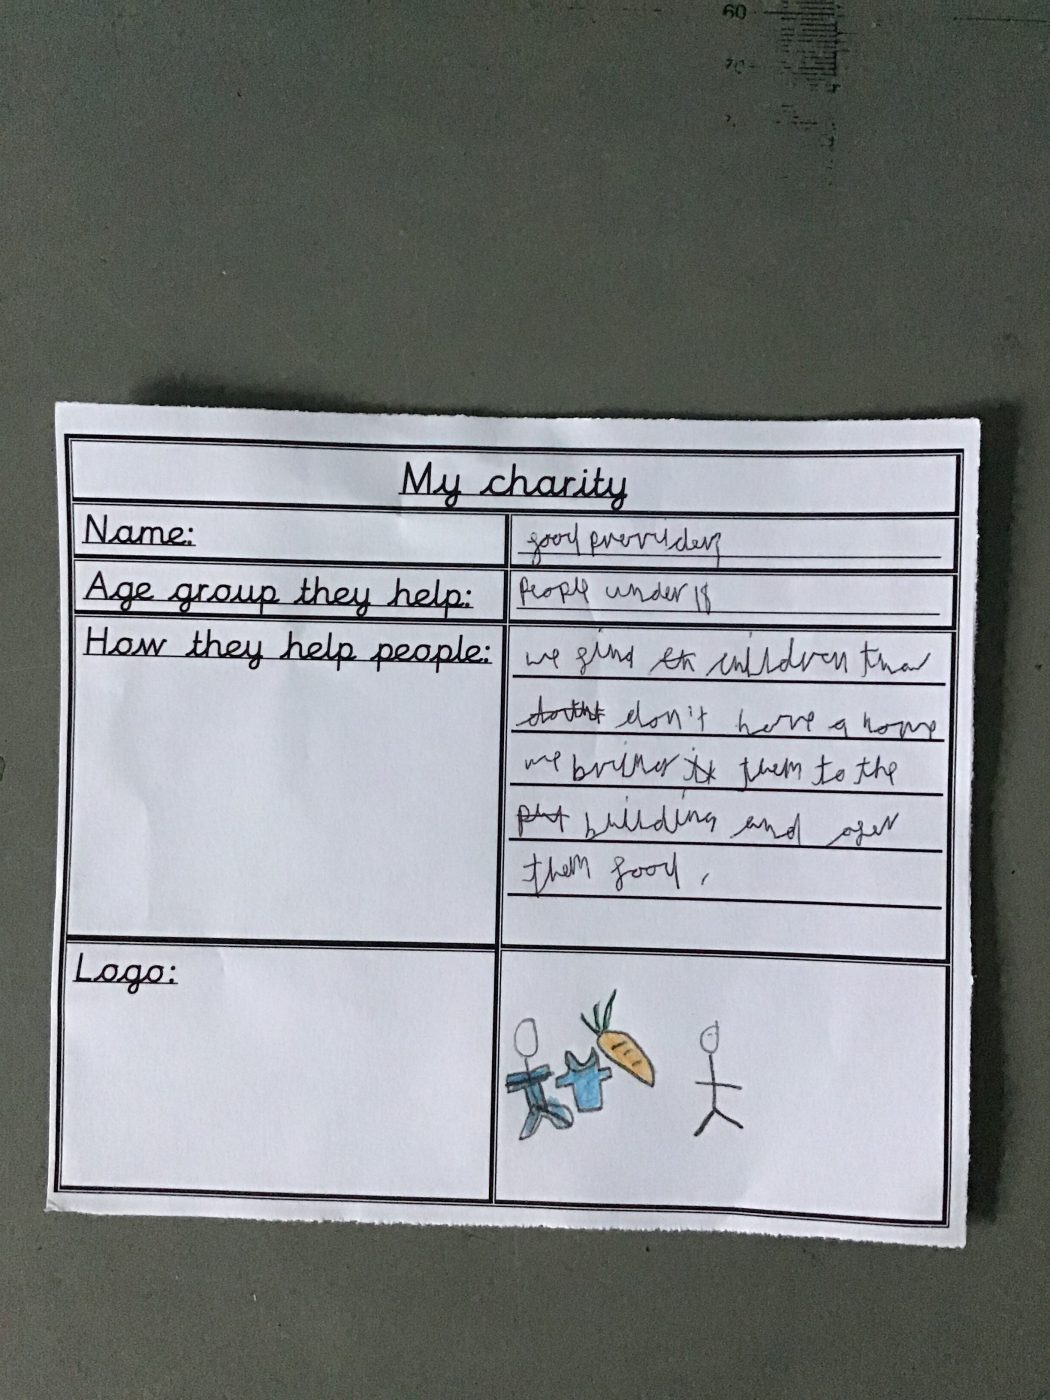 60
70
My charity
Name:
food providers
Age group they help:
People under 18
How they help people:
we find children that
don't have a home
we bring them to the
building and ofer
them food.
Logo: